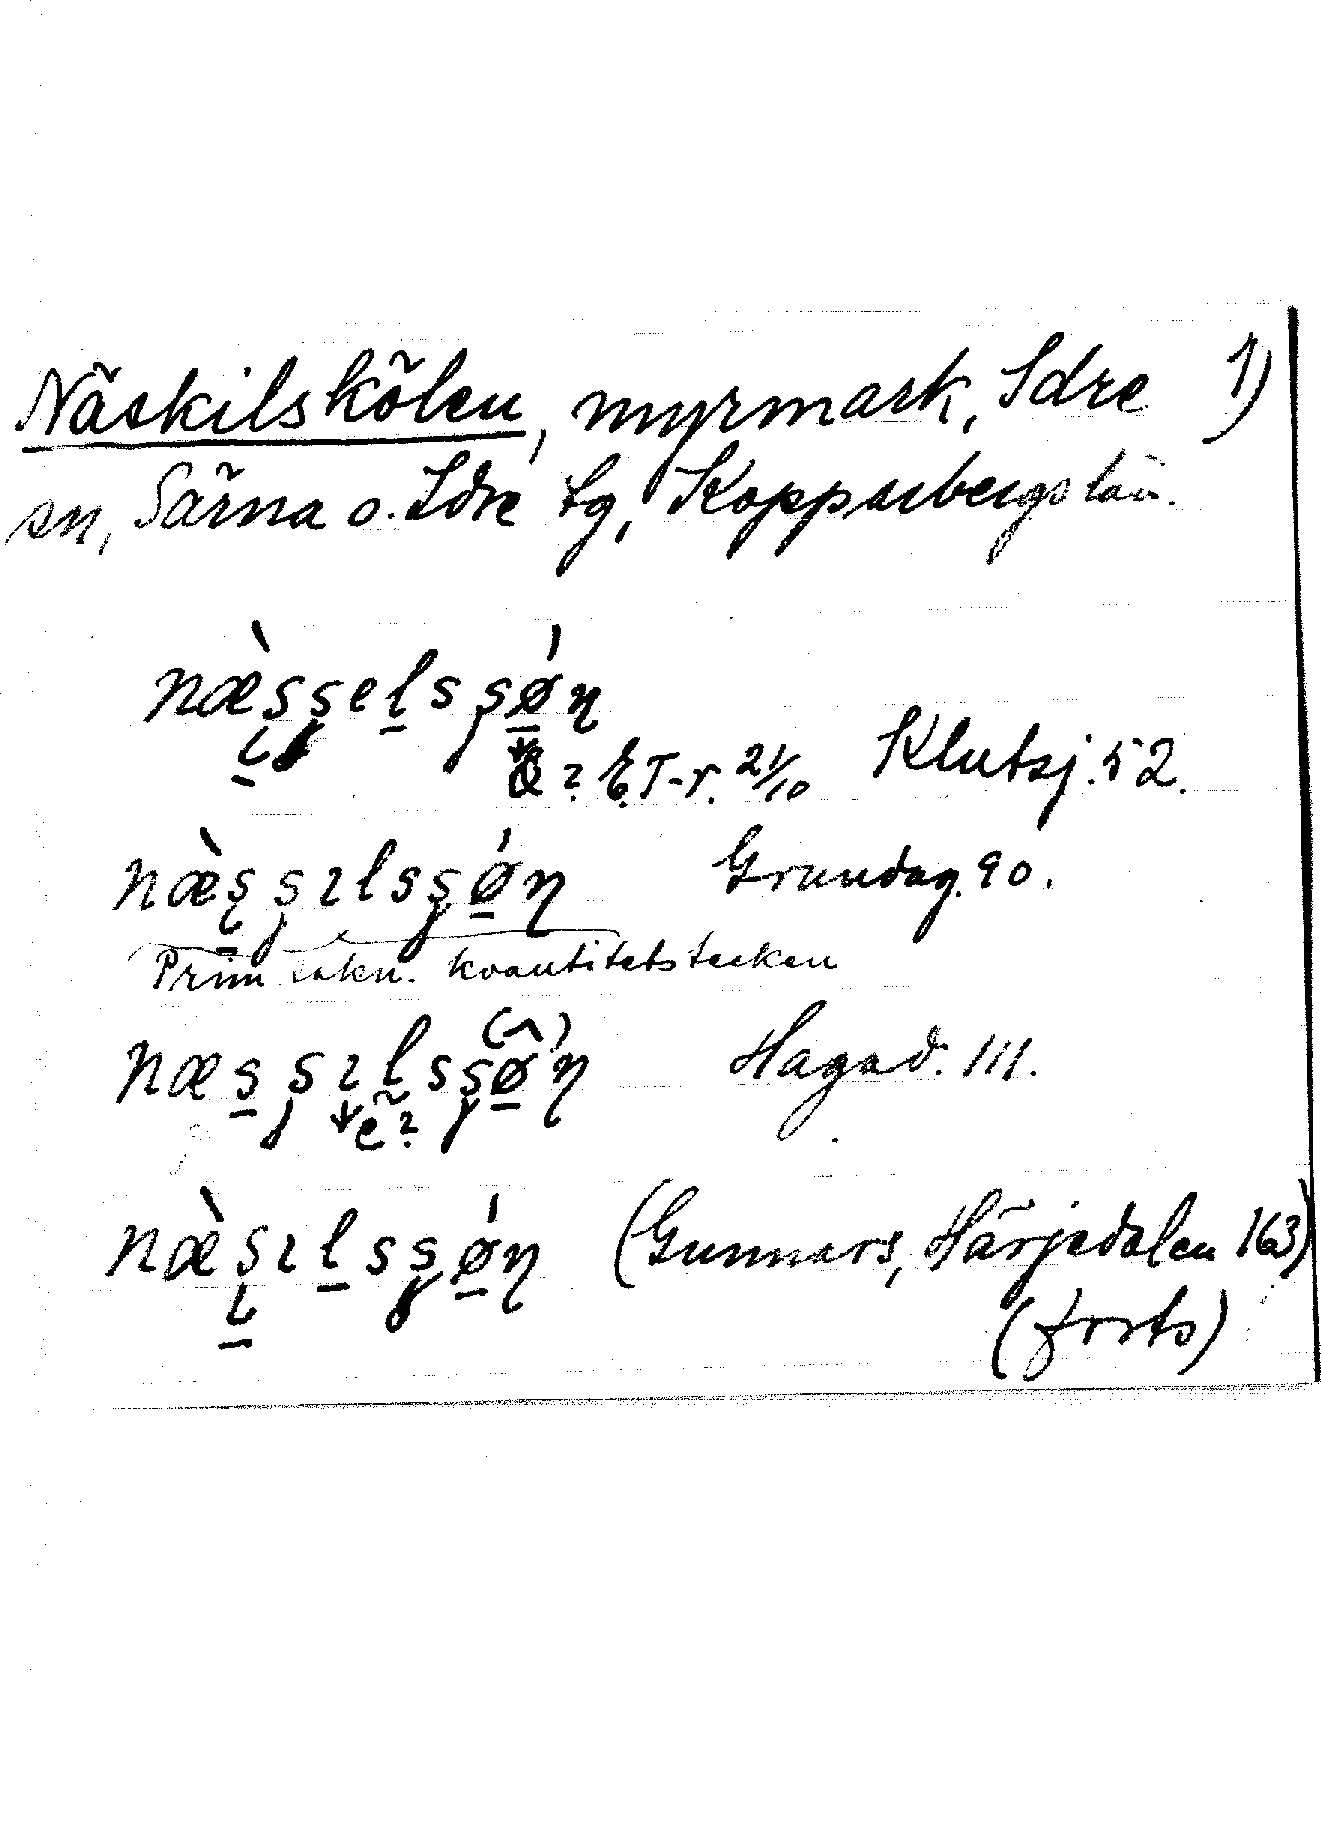 Näskilskölen, myrmark, Idre 1)
sn, Särna o. Idre tg, Kopparbergs län.
næ̀şşelsşøń
? E.T-r. 21/10 Klutsj. 52.
næ̀şşılsşøń Grundag. 90.
Prim. sakn. kvantitetstecken
næsşılsşøn (^) Hagad. 111.
e?
næ̀şılsşøń (Gunnars, Härjedalen 163)
(forts)